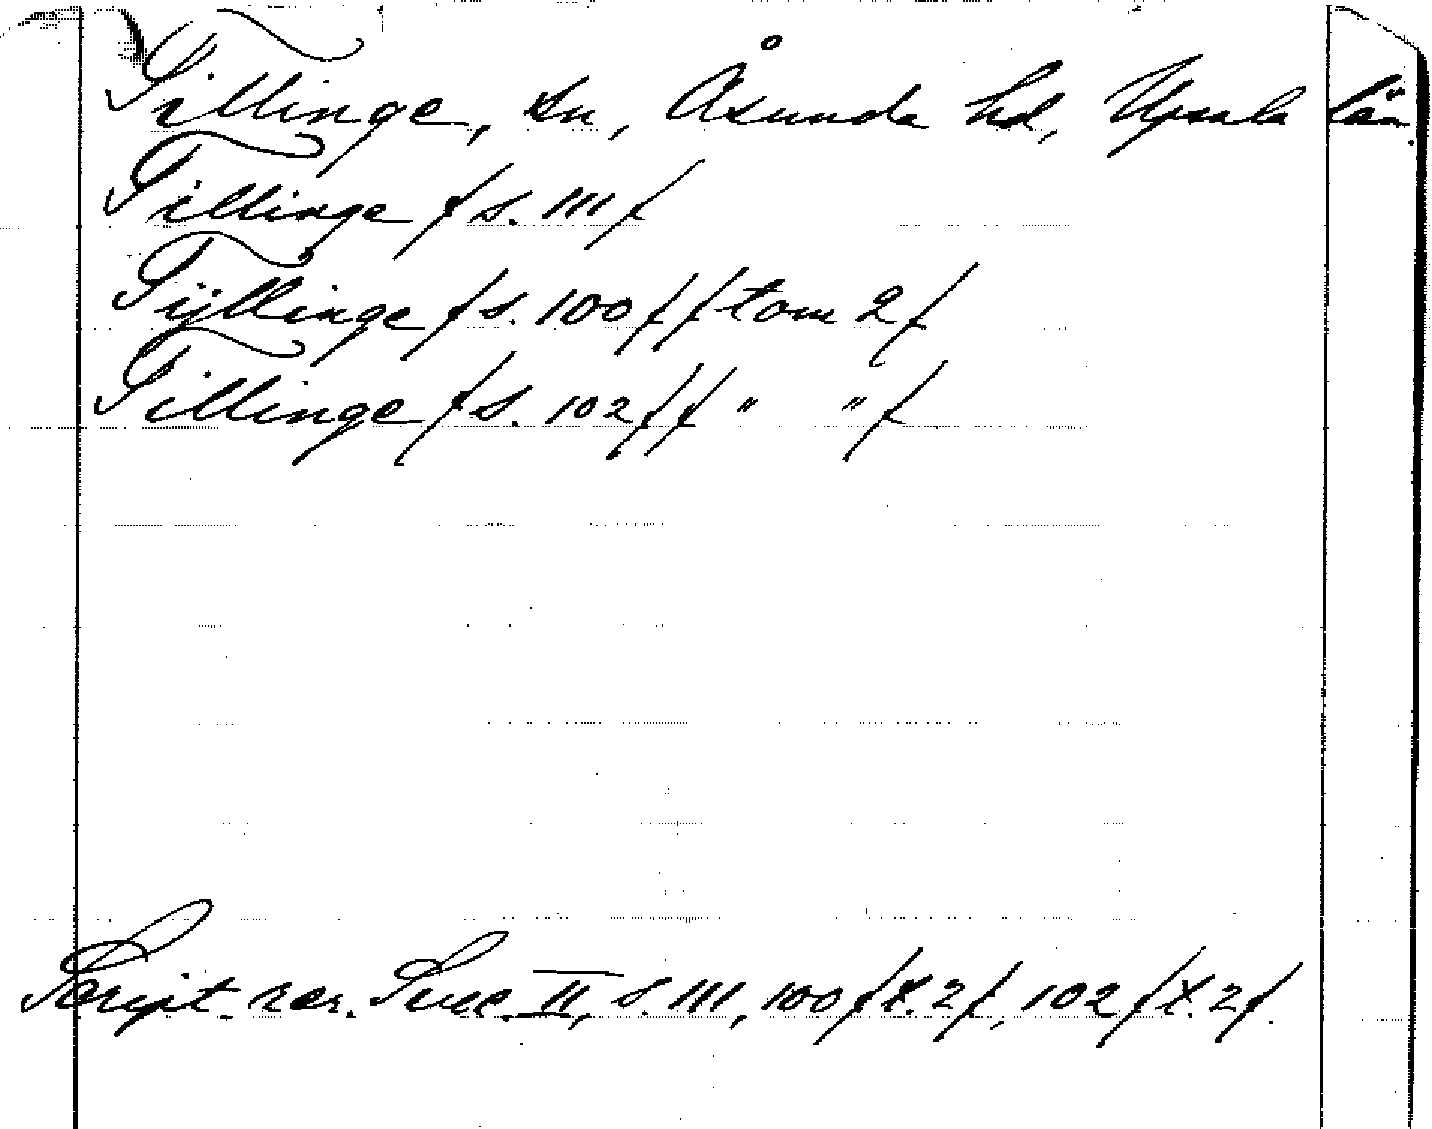 Tillinge, sn, Åsunda hd, Upsala län.
Tillinge /s. 111/
Tÿllinge /s. 100/ /tom 2/
Tillinge /s. 102/ / " " /
Script. rer. Suec. II, s. 111, 100 /t. 2/, 102 /t. 2/.